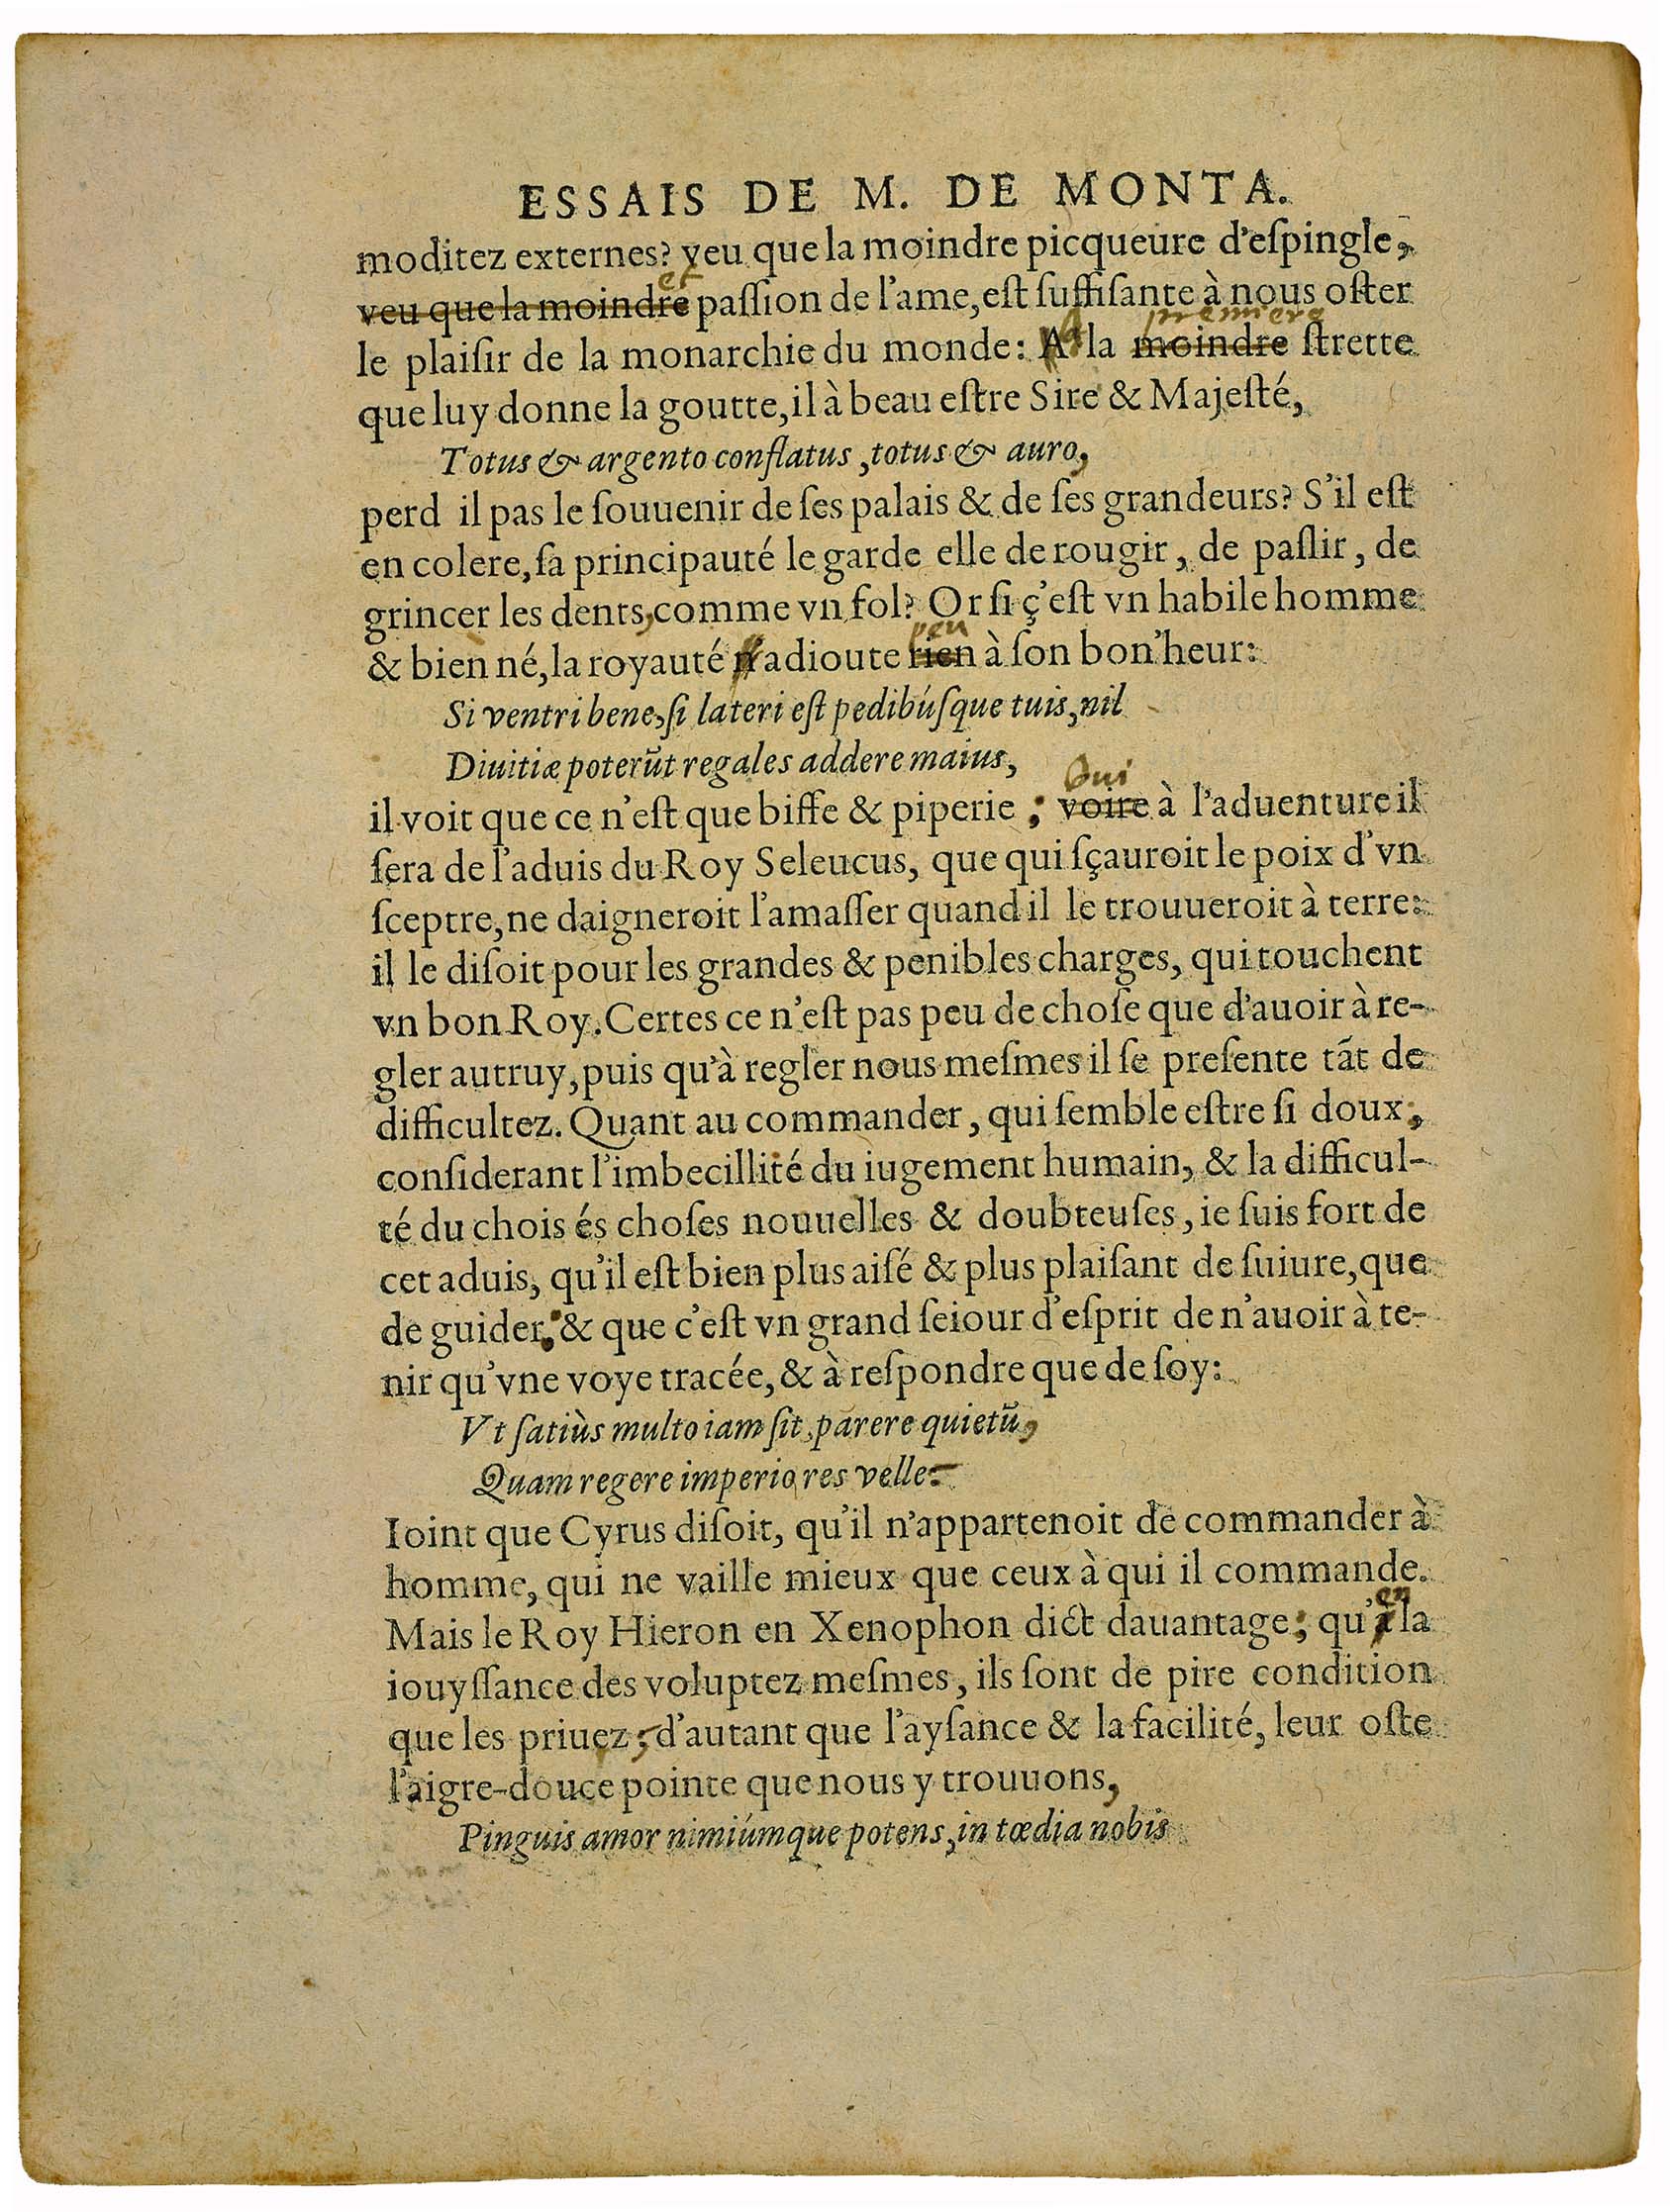 ESSAIS DE M. DE MONTA.
moditez externes? veu que la moindre picqueure d'eſpingle,
et
veu que la moindre paſſion de l'ame, eſt ſuffiſante à nous oſter
premiere
le plaiſir de la monarchie du monde: A la moindre ſtrette
que luy donne la goutte, il à beau eſtre Sire & Majeſté,
Totus & argento conflatus, totus & auro,
perd il pas le ſouuenir de ſes palais & de ſes grandeurs? S'il eſt
en colere, ſa principauté le garde elle de rougir, de paſlir, de
grincer les dents, comme vn fol? Or ſi ç'eſt vn habile homme
peu
& bien né, la royauté adioute rien à ſon bon'heur:
Si ventri bene, ſi lateri eſt pedibúſque tuis, nil
Diuitiæ poterūt regales addere maius,
Oui
il voit que ce n'eſt que biffe & piperie ; voire à l'aduenture il
ſera de l'aduis du Roy Seleucus, que qui ſçauroit le poix d'vn
ſceptre, ne daigneroit l'amaſſer quand il le trouueroit à terre:
il le diſoit pour les grandes & penibles charges, qui touchent
vn bon Roy. Certes ce n'eſt pas peu de choſe que d'auoir à re-
gler autruy, puis qu'à regler nous meſmes il ſe preſente tāt de
difficultez. Quant au commander, qui ſemble eſtre ſi doux;
conſiderant l'imbecillité du iugement humain, & la difficul-
té du chois és choſes nouuelles & doubteuſes, ie ſuis fort de
cet aduis, qu'il eſt bien plus aiſé & plus plaiſant de ſuiure, que
de guider: & que c'eſt vn grand ſeiour d'eſprit de n'auoir à te-
nir qu'vne voye tracée, & à reſpondre que de ſoy:
Vt ſatiùs multo iam ſit, parere quietū,
Quam regere imperio res velle.
Ioint que Cyrus diſoit, qu'il n'appartenoit de commander à
homme, qui ne vaille mieux que ceux à qui il commande.
en
Mais le Roy Hieron en Xenophon dict dauantage; qu'à la
iouyſſance des voluptez meſmes, ils ſont de pire condition
que les priuez; d'autant que l'ayſance & la facilité, leur oſte
l'aigre-douce pointe que nous y trouuons,
Pinguis amor nimiúmque potens, in tœdia nobis